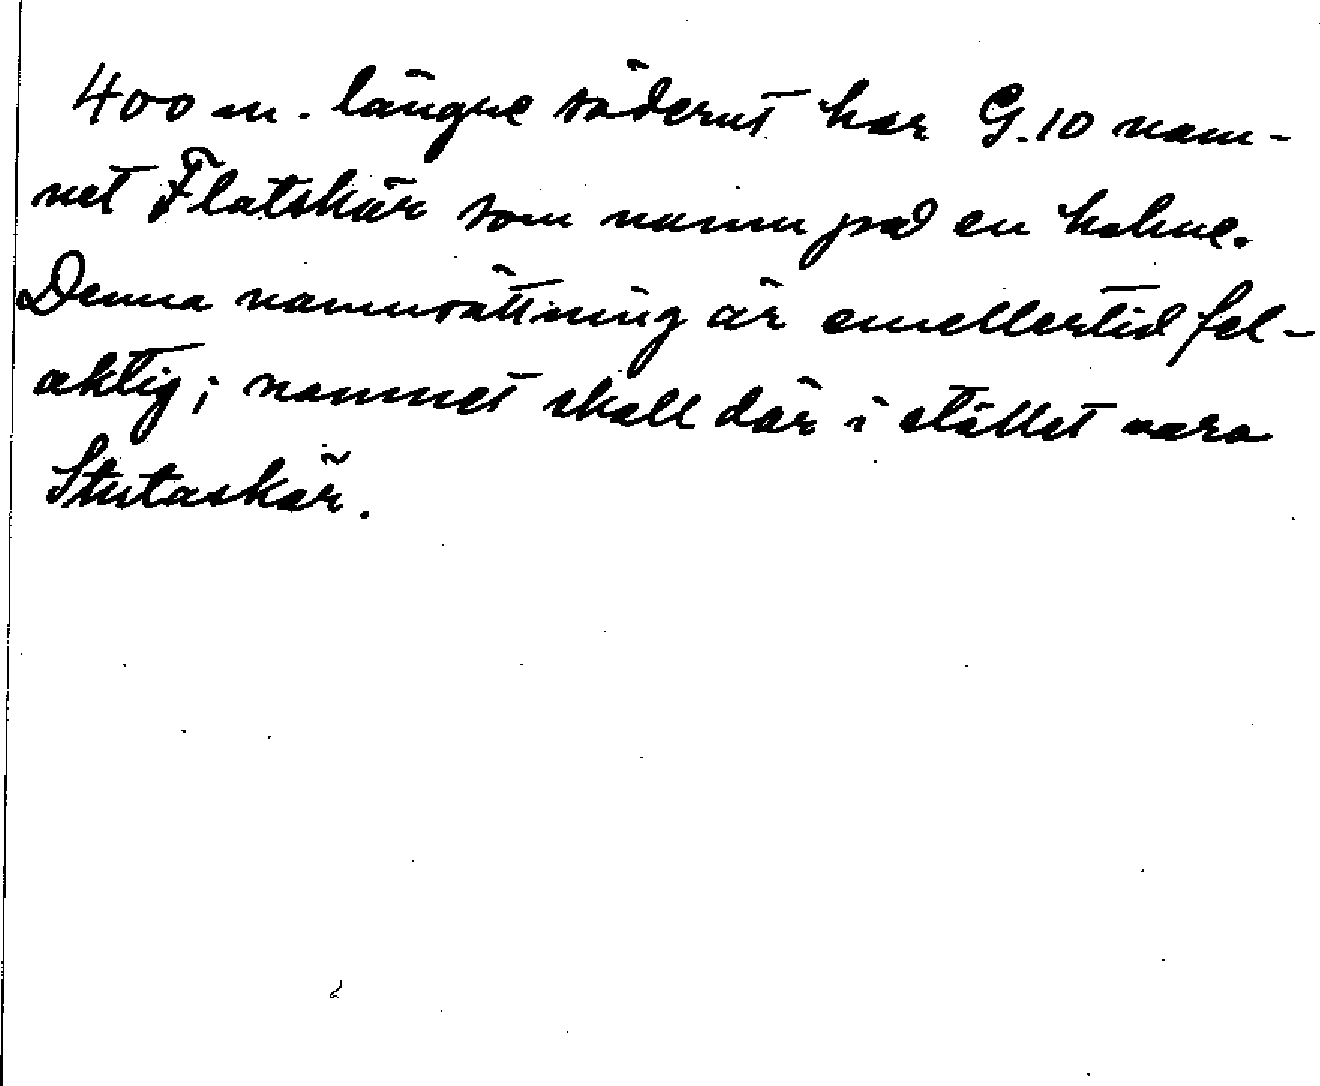 400 m. längre söderut har G.10 nam-
net Flatskär som namn på en holme.
Denna namnsättning är emellertid fel-
aktig; namnet skall där i stället vara
Stutaskär.